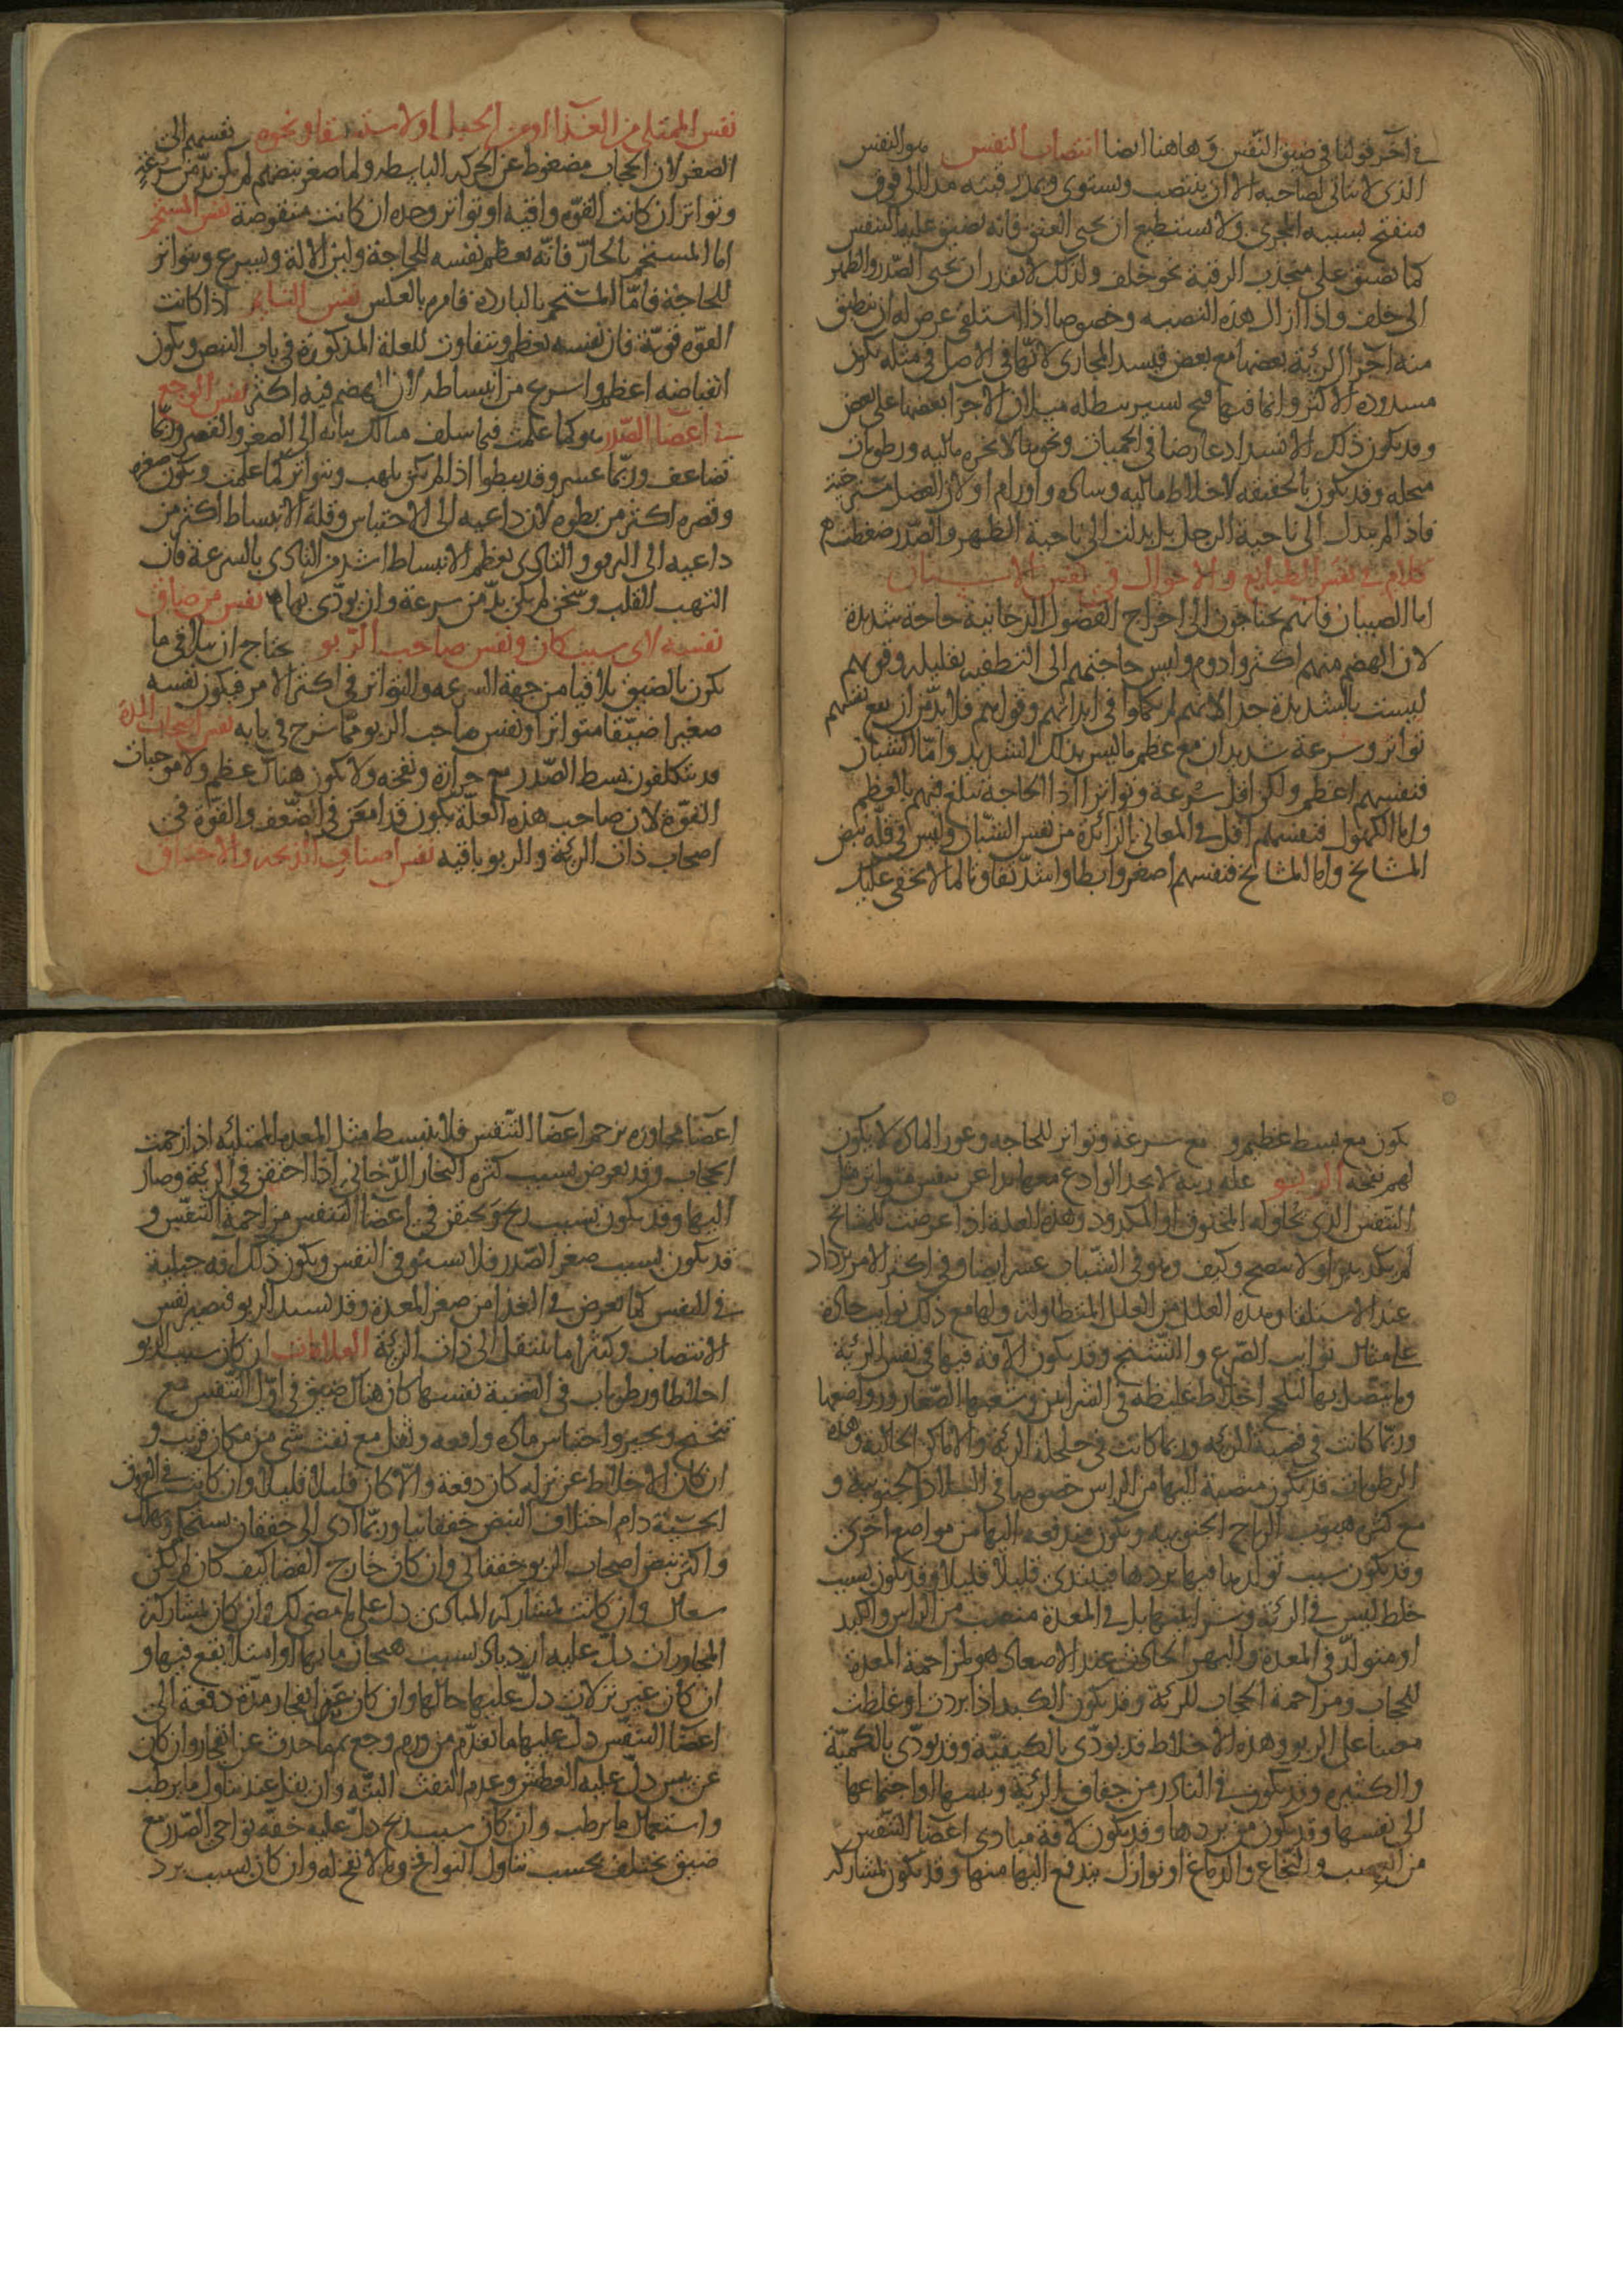 في آخر قولنا في ضيق النفس وهاهنا ايضا انتصاب النفس هو النفس
الذى لا يتاتى لصاحبه الا ان ينتصب ويستوى ويمد رقبته مدا الى فوق
فينفتح بسببه المجرى ولا يستطيع ان يحنى العنق فانه يضيق عليه النفس
كما يضيق على منجذب الرقبة نحو خلف ولذلك لا يقدر ان يحنى الصدر والظهر
الى خلف واذا ازال هذه النصبه وخصوصا اذا استلقى عرض له ان ينطبق
منه آجزا الرئية بعضها مع بعض فيسد المجارى لانها في الاصل في مثله يكون
مسدودة الاكثر وانما فيها فتح يسير يبطله ميلان الاجزا بعضها على بعض
وقد يكون ذلك الانسداد عارضا في الحميات ونحوها لابخره مائيه ورطوبات
منحله وقد يكون بالحقيقه لاخلاط مائيه وساده واورام اولان العضل مسترخية
فاذا لم يتدل الى ناحية الرجل بل تدلت الى ناحية الظهر والصدر ضغطت
كلام في نفس الطبايع والاحوال في نفس الاسنان
اما الصبيان فانهم يحتاجون الى اخراج الفضول الدخانية حاجة شديدة
لان الهضم منهم اكثر وادوم وليس حاجتهم الى التطفيه بقليله وقوتهم
ليست بالشديدة جدا لانهم لم يكملوا في ابدانهم وقواهم فلا بد من ان يقع نفسهم
تواتر وسرعة شديدان مع عظم ما ليس بذلك الشديد واما الشبان
فنفسهم اعظم ولكن اقل سرعة وتواترا اذا الحاجة تبلغ فيهم بالعظم
واما الكهول فنفسهم اقل في المعانى الزائدة من نفس الشبان وليس في قلة نبض
المشايخ واما المشايخ فنفسهم اصغر وابطا واشد تفاوتا لما لا يخفى عليك
نفس الممتلى من الغذا او من الحبل او الاستسقا ونحوه نفسهم الى
الصغر لان الحجاب مضغوط عن الحركه الباسطه ولما صغر نبضهم لم يكن بد من سرعة
وتواتر ان كانت القوه وافيه او تواتر وحده ان كانت منقوصة نفس المستحم
اما المستحم بالحار فانه يعظم نفسه للحاجة ولين الآلة ويسرع ويتواتر
للحاجة فاما المستحم بالبارد فامره بالعكس نفس النايم اذا كانت
القوه قوية فان نفسه يعظم ويتفاوت للعلة المذكورة في باب النبض ويكون
انقباضه اعظم واسرع من انبساطه لان الهضم فيه اكثر نفس الوجع
في اعضا الصدر هو كما علمت فيما سلف منا لك بيانه الى الصغر والقصر وربما
تضاعف وربما عسر وقد يبطوا اذا لم يكن يلهب ويتواتر كما علمت ويكون صغره
وقصره اكثر من بطوه لان داعيه الى الاحتباس وقلة الانبساط اكثر من
داعيه الى الربو والتاذى بعظم الانبساط اشد من التاذى بالسرعة فان
التهب القلب وسخن لم يكن بد من سرعة وان يوذى بها نفس من ضاق
نفسه لاى سبب كان ونفس صاحب الربو يحتاج ان يتلافى ما
يكون بالضيق تلافيا من جهة السرعه والتواتر في اكثر الامر فيكون نفسه
صغيرا ضيقا متواترا ونفس صاحب الربو مما شرح في بابه نفس اصحاب المدة
قد يتكلفون بسط الصدر مع حرارة ونفخة ولا يكون هناك عظم ولا موجبات
القوة لان صاحب هذه العلة يكون قد امعن في الضعف والقوة في
اصحاب ذات الرئة والربو باقيه نفس اصناف الذبحه والاختناق
يكون مع بسط عظيم و مع سرعة وتواتر للحاجه وغور المادة لا يكون
لهم نفخه الربو علة ريئة لا يجد الوادع معها بدا عن نفس متواتر مثل
النفس الذى يحاوله المخنوق او المكدود وهذه العلة اذا عرضت للمشايخ
لم يكد يبرا ولا ينضج وكيف وهو في الشباب عسر ايضا وفى اكثر الامر يزداد
عند الاستلقا وهذه العلة من العلل المتطاولة ولها مع ذلك نوايب حادة
على مثال نوايب الصرع والتشنج وقد يكون الآفة فيها في نفس الرئية
وما يتصل بها لتلحج اخلاط غليظه في الشرايين وشعبها الصغار ورواضعها
وربما كانت في قصبة الرئه وربما كانت في خلخلة الرئة والاماكن الخالية وهذه
الرطوبات قد يكون منصبة اليها من الراس خصوصا في البلاد الجنوبية و
مع كثره هبوب الرياح الجنوبيه ويكون مندفعه اليها من مواضع اخرى
وقد يكون سبب تولدها فيها بردها فيبتدى قليلا قليلا وقد يكون بسبب
خلط ليس في الرئة وشرايينها بل في المعدة منصب من الراس والكبد
او متولد في المعدة والبهر الحادث عند الاصعاد هو لمزاحمة المعدة
للحجاب ومزاحمة الحجاب للرئة وقد يكون الكبد اذا بردت او غلظت
معينا على الربو وهذه الاخلاط قد يوذى بالكيفية وقد يوذى بالكمية
والكثيره وقد يكون في النادر من جفاف الرئية ويبسها او اجتماعها
الى نفسها وقد يكون من بردها وقد يكون لآفة مبادى اعضا التنفس
من العصب والنخاع والدماغ او نوازل يندفع اليها منها وقد يكون لمشاركة
اعضا مجاوره يزحم اعضا التنفس فلا ينبسط مثل المعدة الممتلئه اذا زحمت
الحجاب وقد يعرض بسبب كثره البخار الدخانى اذا احتقن في الرئية وصار
اليها وقد يكون بسبب ريح يحتقن في اعضا التنفس مزاحمة التنفس و
قد يكون بسبب صغر الصدر فلا يسع في النفس ويكون ذلك افه جبلية
في النفس كما يعرض في الغذا من صغر المعدة وقد يشتد الربو فيصير نفس
الانتصاب وكثيرا ما ينتقل الى ذات الرية العلامات ان كان سبب الربو
اخلاطا ورطوبات في القصبة نفسها كان هناك ضيق في اول التنفس مع
تنحنح ونحير واحتباس مادة واقعه وثقل مع نفث شى من مكان قريب و
ان كان الاخلاط عن نزله كان دفعة والا كان قليلا قليلا وان كانت في العروق
الخشنة دام اختلاف النبض خفقانيا وربما ادى الى خفقان يستحكم ويهلك
واكثر نبض اصحاب الربو خفقانى وان كان خارج الفضا كيف كان لم يكن
سعال وان كانت بمشاركة المبادى دل على ما مضى لك وان كان بمشاركة
المجاورات دل عليه ازدياده بسبب هيجان مابها او امتلا يقع فيها و
ان كان عن نزلات دل عليها حالها وان كان عن انفجار مدة دفعة الى
اعضا التنفس دل عليها ما تقدم من ورم وجع ثم ما حدث عن انفجار وان كان
عن يبس دل عليه العطش وعدم النفث البته وان يقل عند تناول ما يرطب
واستعمال ما يرطب وان كان بسبب ريح دل عليه خفه نواحى الصدر مع
ضيق يختلف بحسب تناول النوافخ وما لا نفخ له وان كان بسبب برد